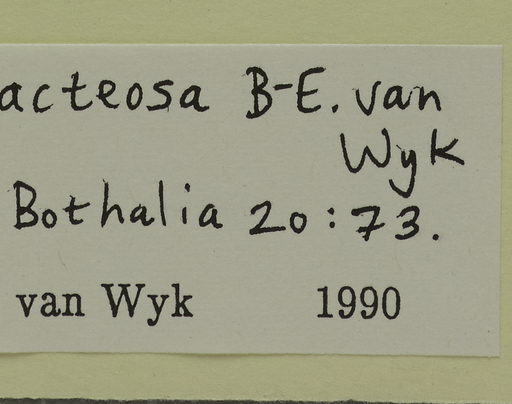 acteosa B-E. van
Wyk
Bothalia 20:73.
van Wyk 1990